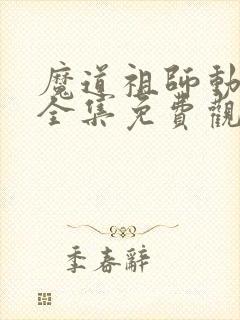 魔道祖師動
全集免費觀
季春辭